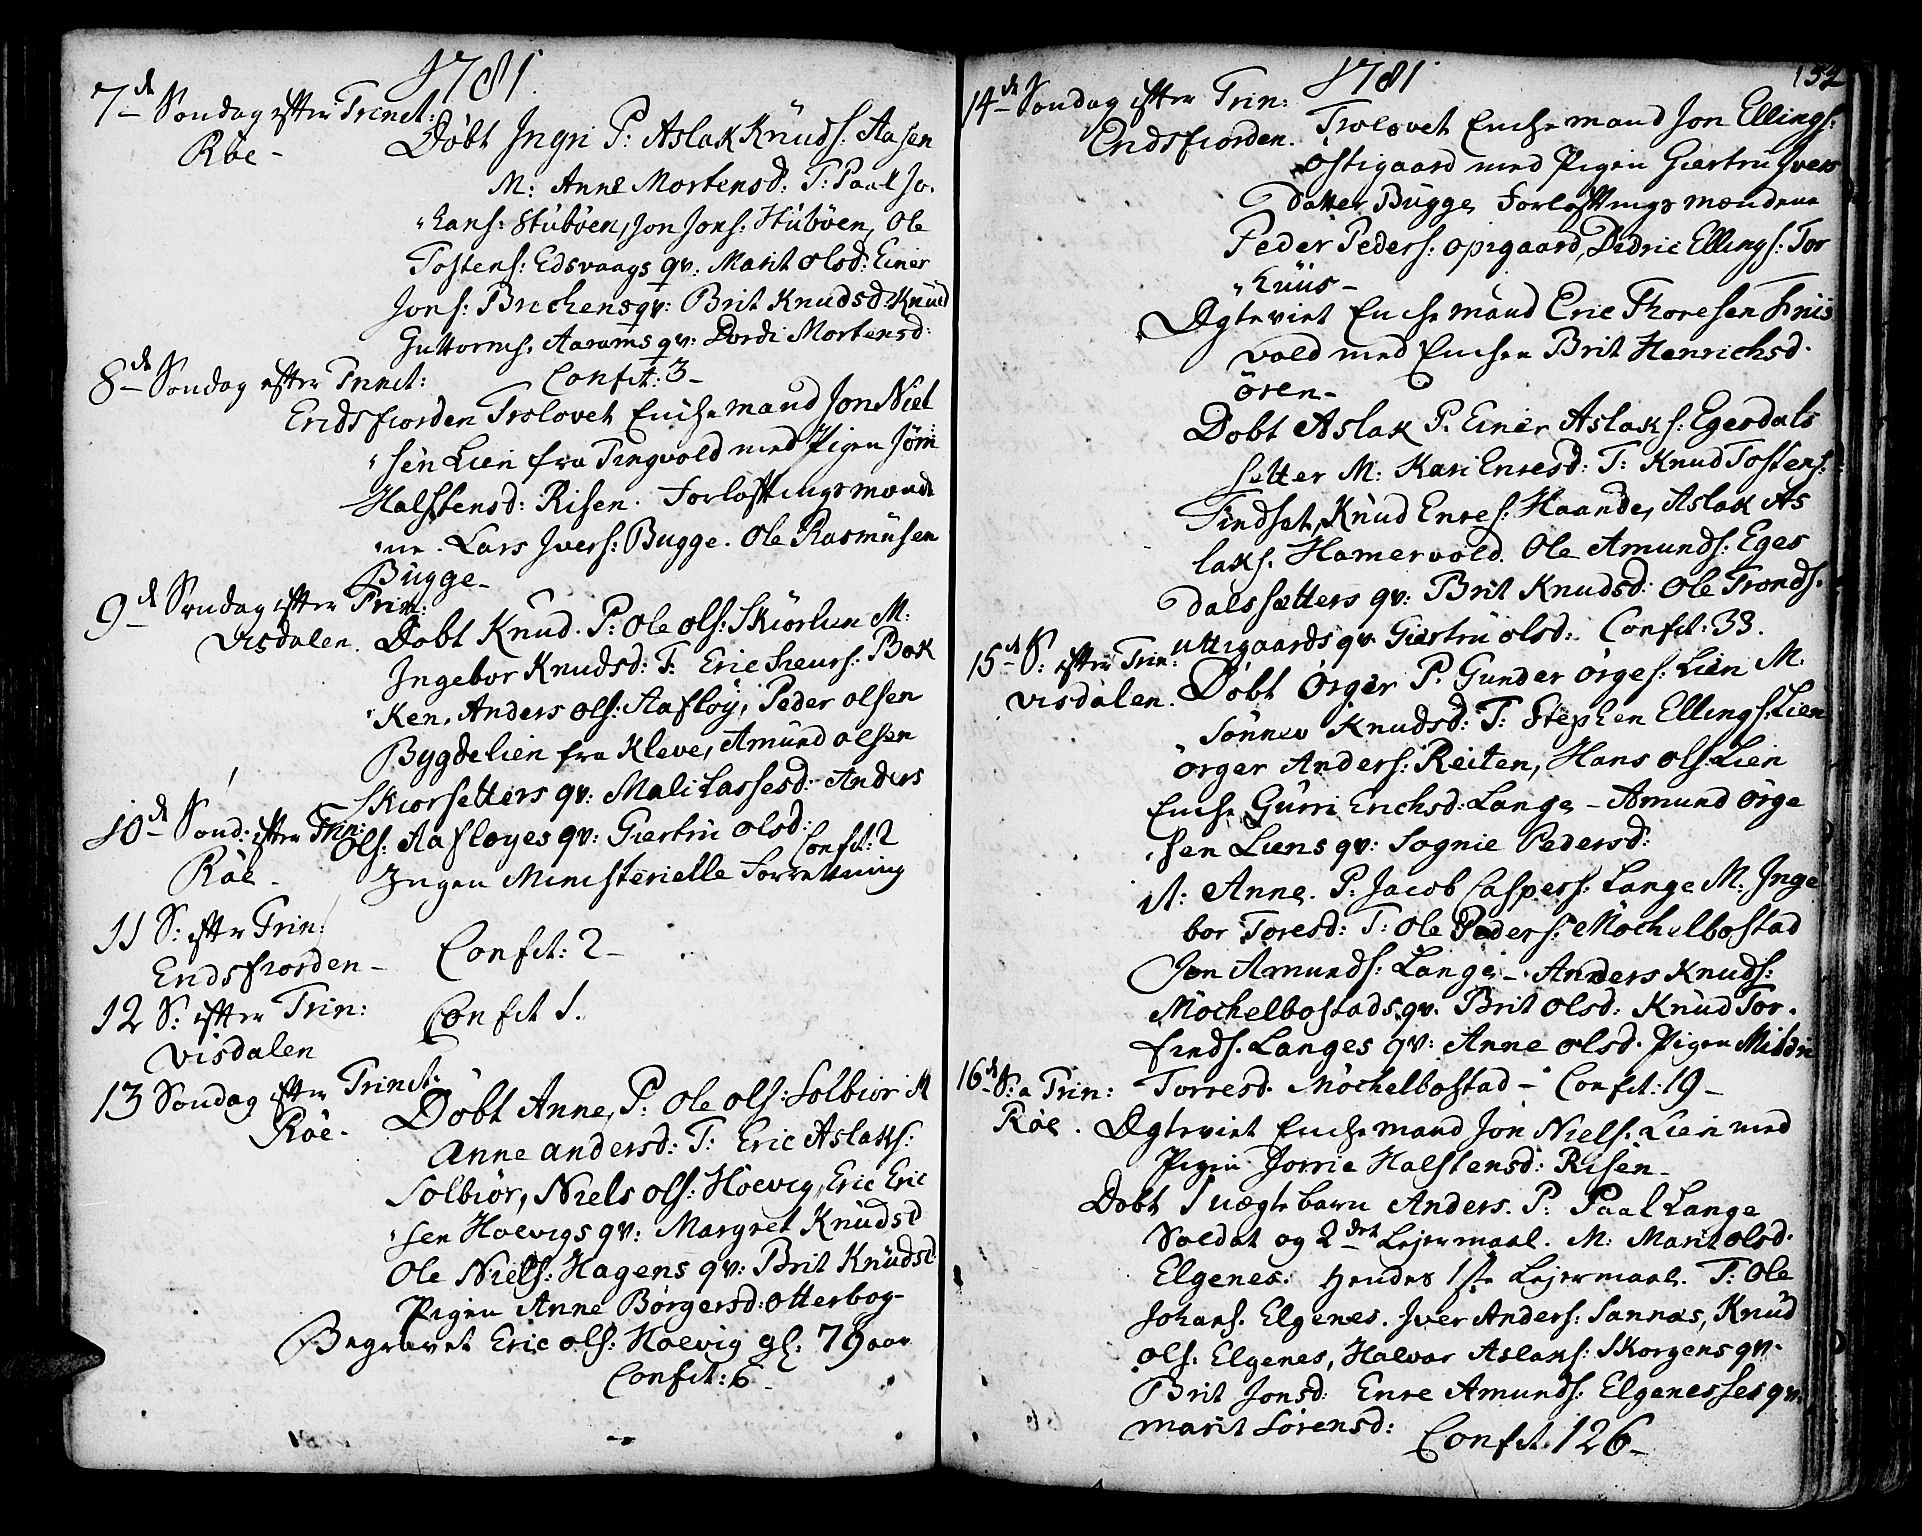 1781.
7de Søndag efter Trinet:
Røe -
Døbt Ingri P: Aslak Knuds: Aasen
M: Anne Mortensd: T: Paal Jo,
"hans: Stubøen, Jon Jons: Stubøen, Ole
Tostens: Edsvaags qv: Marit Olsd: Einer
Jons: Brichens qv: Brit Knudsd: Knud
Guttorms: Aarams qv: Dordi Mortensd:
Confit: 3 -
8de Søndag efter Trinet:
Eridsfiorden Trolovet Enchemand Jon Niel
"sen Lien fra Tingvold med Pigen Jørri
Halstensd: Risen. Forløftingsmænde
"ne. Lars Ivers: Bugge. Ole Rasmusen
Bugge -
9de Søndag efter Trin:
Visdalen. Døbt Knud. P: Ole Ols: Skiorlien M:
Ingebor Knudsd: T: Eric Sieurs: Bok
"ken, Anders Ols: Aafløy, Peder Olsen
Bygdelien fra Kleve, Amund Olsen
Skiorsetters qv: Mali Lassesd: Anders
Ols: Aafløyes qv: Giertru Olsd:
Confit: 2
10de Sond: efter Trin:
Røe - Ingen Ministerielle Forretning
11 S: efter Trin:
Eridsfiorden - Confit: 2 -
12 S: efter Trin: Confit 1.
Visdalen
13 Søndag efter Trinet:
Røe - Døbt Anne, P: Ole Ols: Solbiør M
Anne Andersd: T: Eric Aslaks:
Solbiør, Niels Ols: Hoevig, Eric Eric
"sen Hoevigs qv: Margret Knudsd
Ole Niels: Hagens qv: Brit Knudsd:
Pigen Anne Børgersd: Otterbog -
Begravet Eric Ols: Hoevig gl. 79 aar
Confit: 6 -
1781
152
14de Søndag efter Trin:
Eridsfiorden. Trolovet Enchemand Jon Ellings:
Østigaard med Pigen Giertru Ivers
Datter Bugge, Forløftningsmændene
Peder Peders: Opigaard, Didric Ellings: Tor
"huus -
Ægteviet Enchemand Eric Thoresen Friis
vold med Enchen Brit Henrichsd.
Øren -
Døbt Aslak P. Einer Aslaks: Egesdals
setter M: Kari Enresd: T: Knud Tostens:
Tindset, Knud Enres: Haande, Aslak As
laks. Hamervold. Ole Amunds: Eges
dalssætters qv: Brit Knudsd: Ole Tronds.
Uttigaards qv. Giertru Olsd: Confit: 33.
15de S: efter Trin:
Visdalen. Døbt Ørger P. Gunder Ørges: Lien M.
Sønnev Knudsd: T: Stephen Ellings: Lien
Ørger Anders: Reiten, Hans Ols: Lien
Enche Gurri Erichsd: Lange - Amund Ørge
"sen Liens qv: Sognie Pedersd:
it: Anne. P: Jacob Caspers: Lange M: Inge
bor Toresd: T: Ole Peders: Møchelbostad
Jon Amunds: Lange - Anders Knuds:
Møchelbostads qv. Brit Olsd: Knud Tor.
finds. Langes qv: Anne Olsd. Pigen Mildri
Torresd. Møchelbostad - Confit: 19 -
16de S: a Trin:
Røe. Ægteviet Enchemand Jon Niels: Lien med
Pigen Jorrie Halstensd: Risen -
Døbt 1 uægte barn Anders. P: Paal Lange
Soldat og 2det Lejermaal. M: Marit Olsd.
Elgenes. Hendes 1ste Lejermaal. T: Ole
Johans. Elgenes. Iver Anders: Sannæs, Knud
Ols. Elgenes, Halvor Aslaks: Skorgens qv.
Brit Jonsd: Enre Amunds: Elgenesses qv.
Marit Sørensd: Confit. 126 -